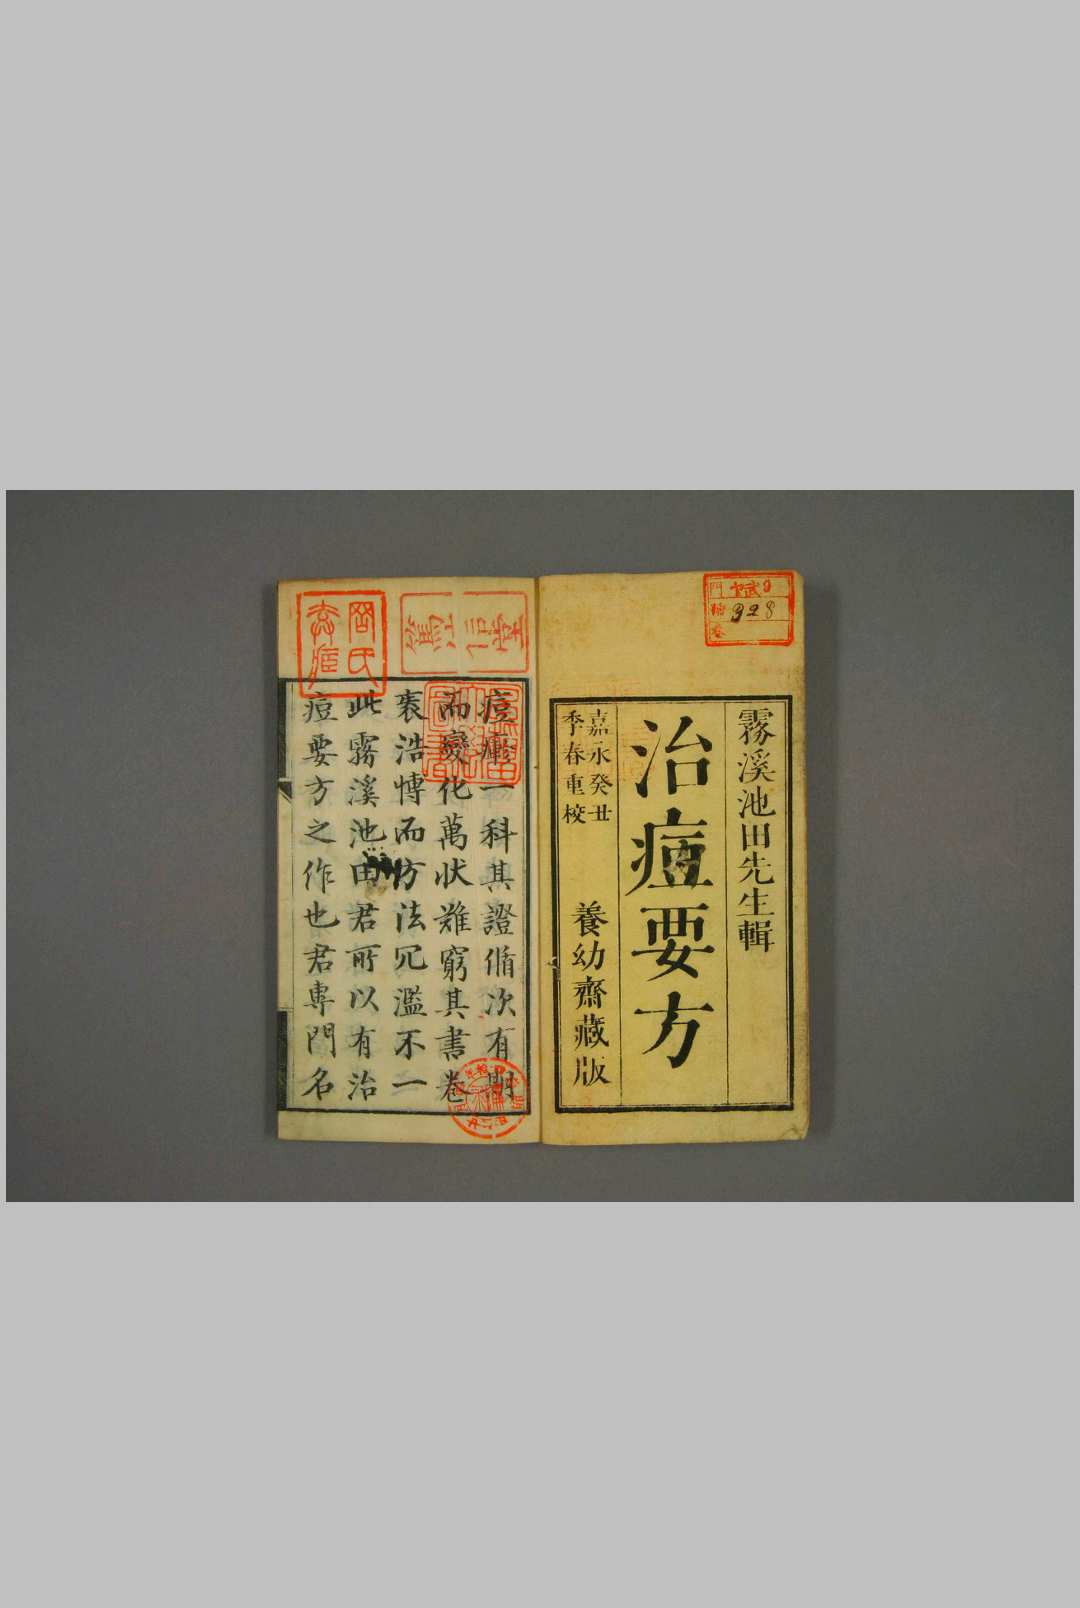 霧溪池田先生輯
治痘要方
嘉永癸丑
季春重校
養幼齋藏版
痘瘡一科其證脩次有期
而變化萬狀難窮其書卷
裘浩慱而方法冗濫不一
此霧溪池田君所以有治
痘要方之作也君專門名
門
328